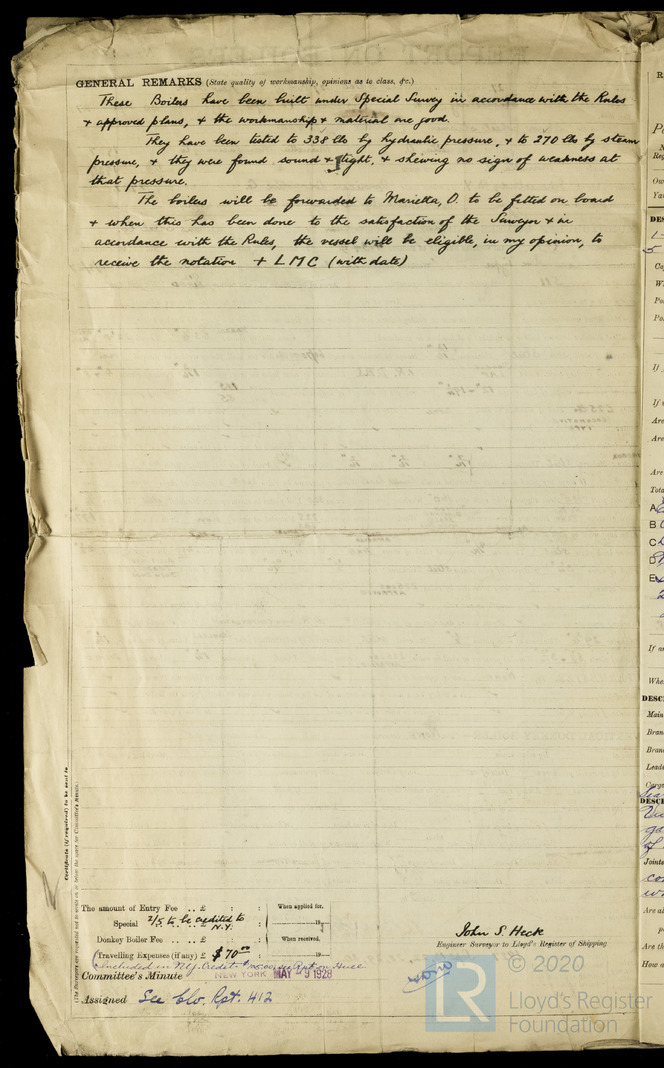 GENERAL REMARKS (State quality of workmanship, opinions as to class, &c.)
These Boilers have been built under Special Survey in accordance with the Rules
+ approved plans, & the workmanship & material are good.
They have been tested to 338 lbs by hydraulic pressure, & to 270 lbs by steam
pressure, & they were found sound & tight, & shewing no sign of weakness at
that pressure.
The boilers will be forwarded to Marietta, O. to be fitted on board
+ when this has been done to the satisfaction of the Surveyor & in
accordance with the Rules, the vessel will be eligible, in my opinion, to
receive the notation + LMC (with date)
Certificate (if required) to be sent to
(The Surveyors are requested not to write on or below the space for Committee's Minute.)
The amount of Entry Fee .. £ : :
When applied for,
Special 2/5 to be credited to N.Y.
19
Donkey Boiler Fee .. £ : :
When received,
Travelling Expenses (if any) £ $ 70.00
19
Included in N.Y. Credit
John S. Heck
Engineer Surveyor to Lloyd's Register of Shipping
Committee's Minute NEW YORK MAY - 9 1928
Assigned See Rpt. 412
© 2020
LR
Lloyd's Register
Foundation